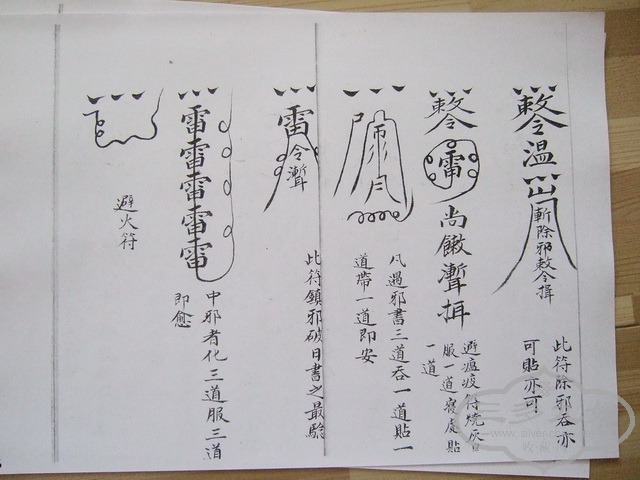 敕令
溫
斬除邪敕令揖
此符除邪吞亦
可貼亦可
敕令
雷
尚
聻
揖
避瘟疫符燒灰
服一道寢處貼
一道
凡遇邪書三道吞一道貼一
道帶一道即安
雷
令聻
此符鎮邪破日書之最驗
雷
雷
雷
雷
雷
中邪者化三道服三道
即愈
避火符